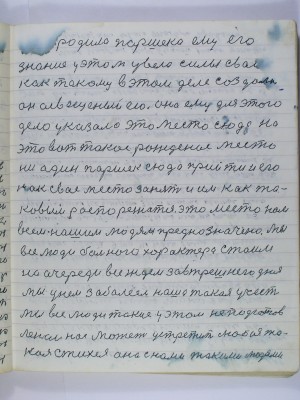 родила паршека ему его
знание у этом увела силы свая
как такому в этом деле создала
он освещеный его. она ему для этого
дело указала это место сюда на
это вот такое рождение место
ни один паршек сюда прийти и его
как свае место занят и им как та-
ковым распоряжатся. это место нам
всем нашим людям предназначено, мы
все люди больного характера стаим
на очереди все ждем завтрешнего дня
мы у нем заболеем наша такая у част
мы все люди такие у этом неподготов
леная нас может устретит любая та-
кая стихея она с нами такими людями